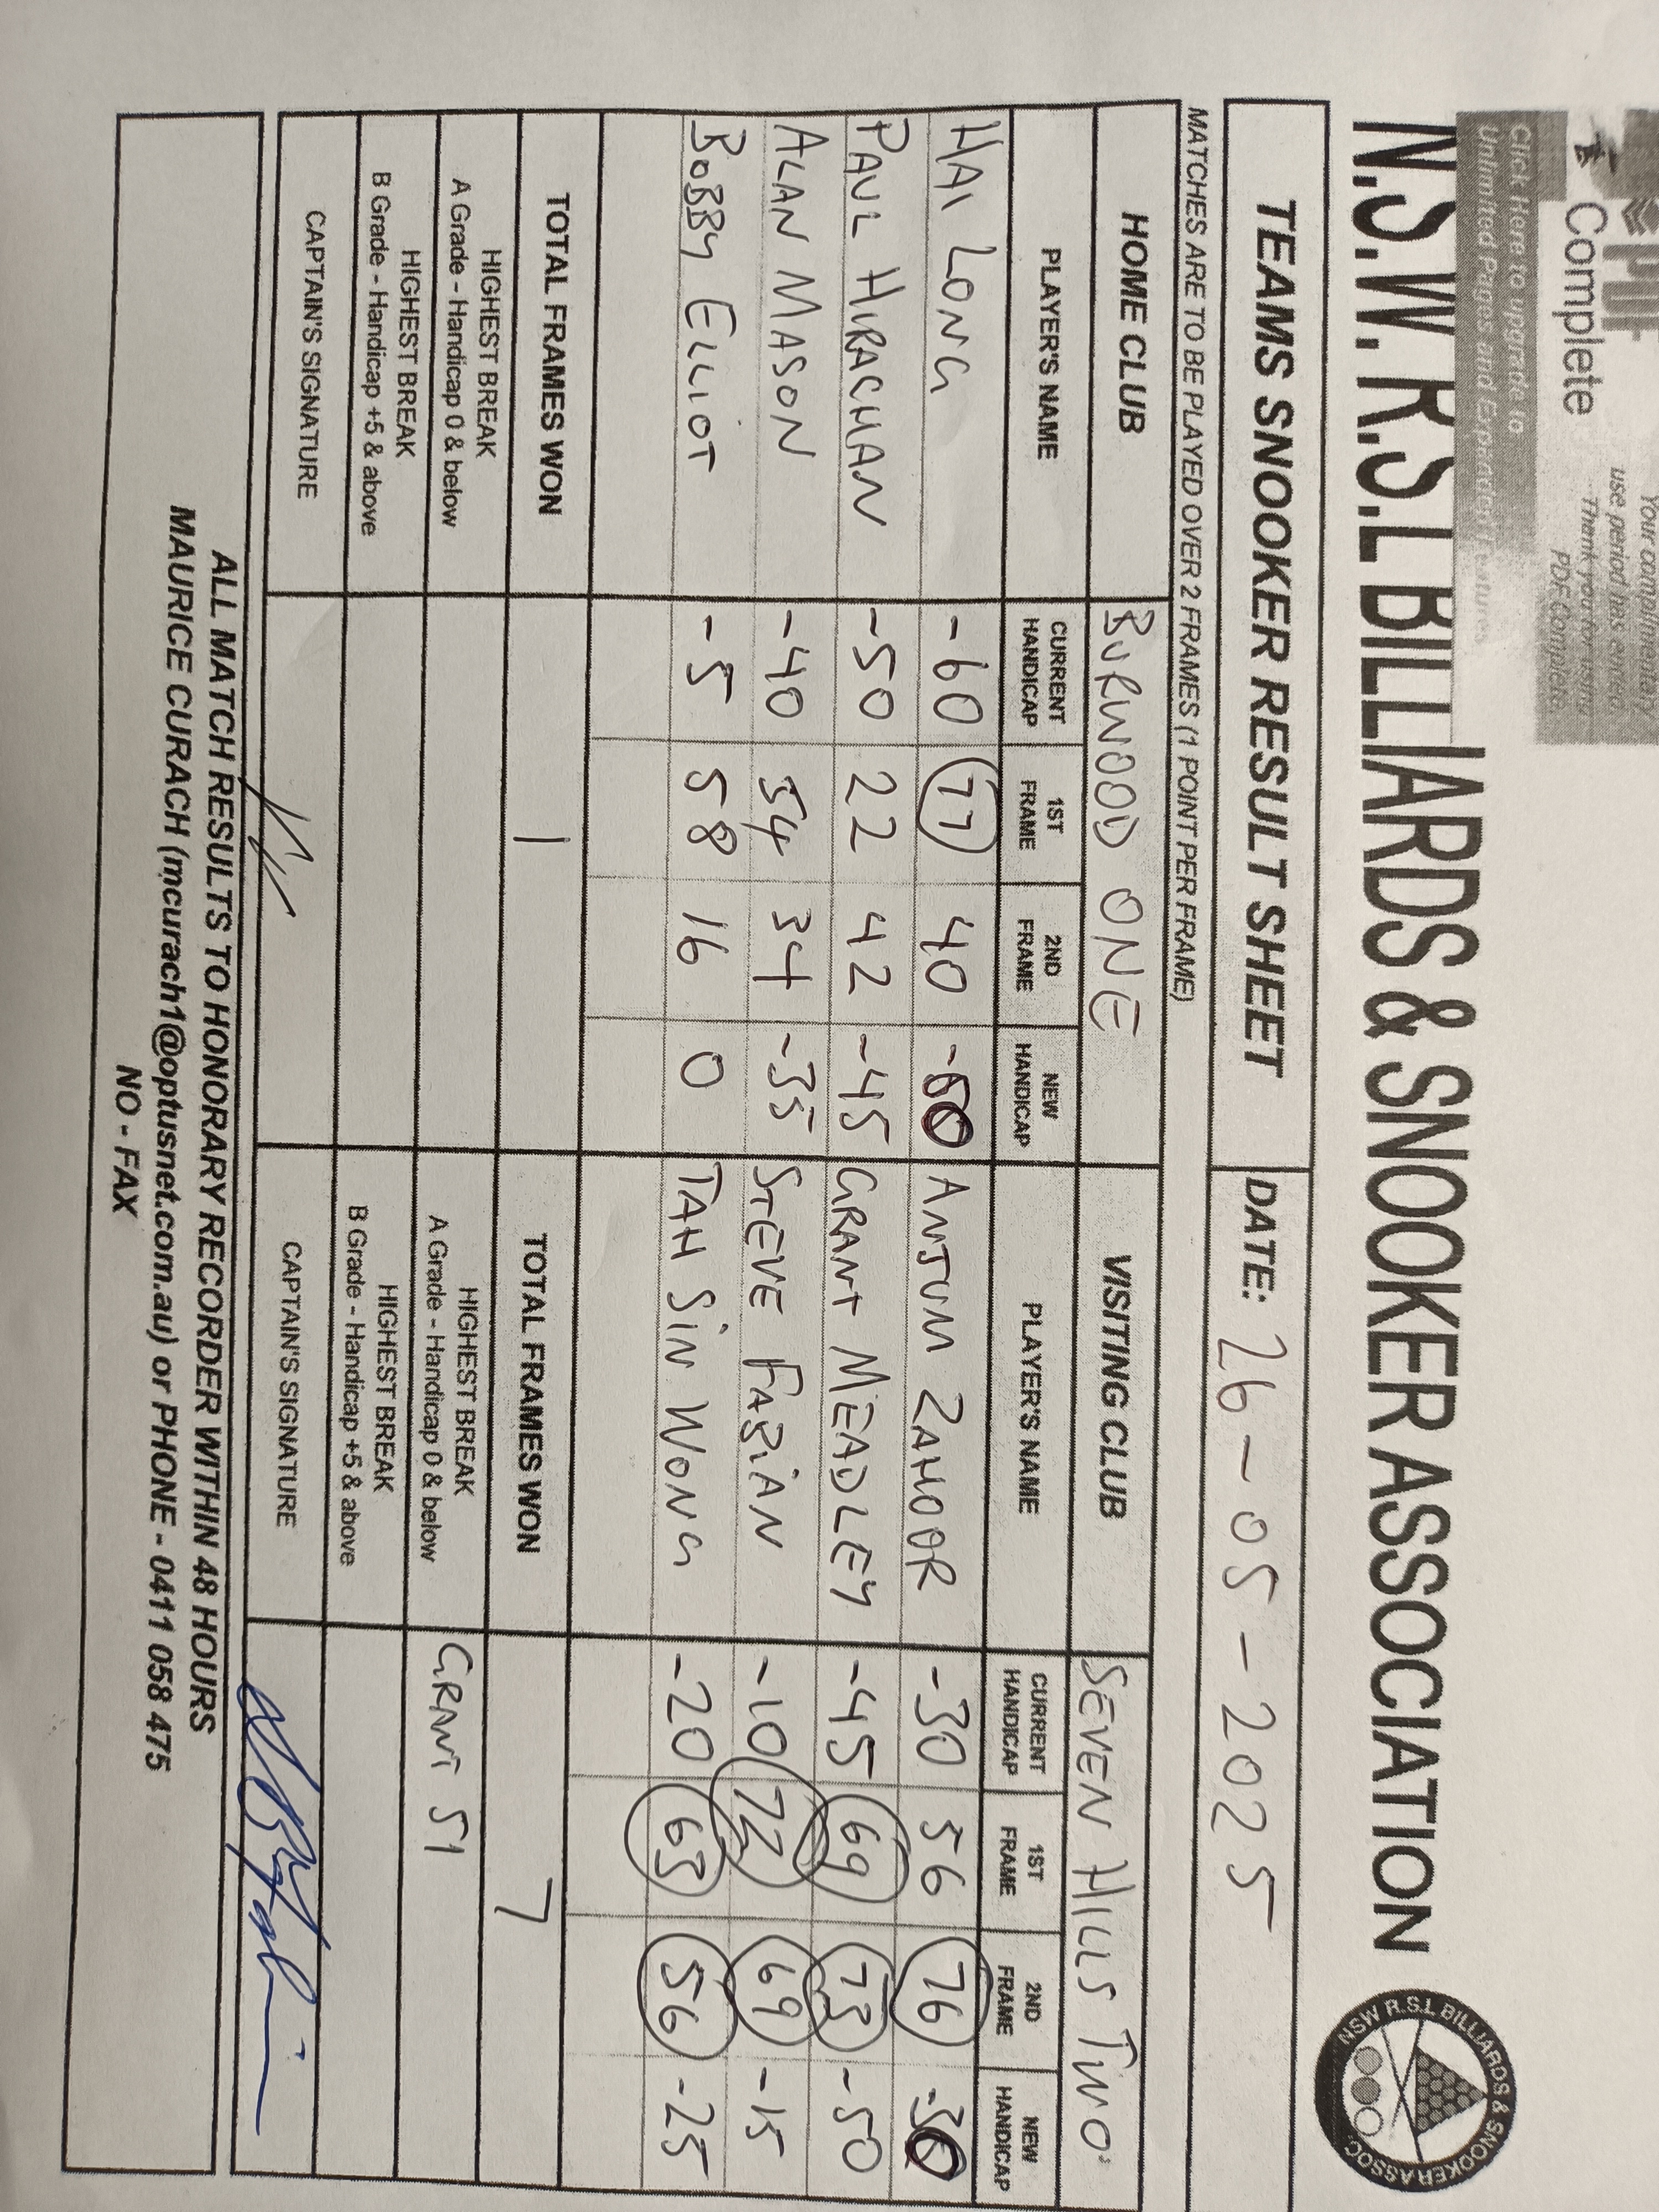 PDF
Complete
Your complimentary
use period has ended.
Thank you for using
PDF Complete.
Click Here to upgrade to
Unlimited Pages and Expanded Features
N.S.W. R.S.L BILLIARDS & SNOOKER ASSOCIATION
NSW R.S.L BILLIARDS & SNOOKER ASSOC.
TEAMS SNOOKER RESULT SHEET DATE: 26-05-2025
MATCHES ARE TO BE PLAYED OVER 2 FRAMES (1 POINT PER FRAME)
HOME CLUB BURWOOD ONE VISITING CLUB SEVEN HILLS TWO
PLAYER'S NAME CURRENT HANDICAP 1ST FRAME 2ND FRAME NEW HANDICAP PLAYER'S NAME CURRENT HANDICAP 1ST FRAME 2ND FRAME NEW HANDICAP
HAI LONG -60 77 40 -60 ANJUM ZAHOOR -30 56 76 -30
PAUL HIRACHAN -50 22 42 -45 GRANT MEADLEY -45 69 73 -50
ALAN MASON -40 54 34 -35 STEVE FABIAN -10 72 69 -15
BOBBY ELLIOT -5 58 16 0 TAH SIN WONG -20 63 56 -25
TOTAL FRAMES WON 1 TOTAL FRAMES WON 7
HIGHEST BREAK HIGHEST BREAK
A Grade - Handicap 0 & below A Grade - Handicap 0 & below GRANT 51
HIGHEST BREAK HIGHEST BREAK
B Grade - Handicap +5 & above B Grade - Handicap +5 & above
CAPTAIN'S SIGNATURE CAPTAIN'S SIGNATURE
ALL MATCH RESULTS TO HONORARY RECORDER WITHIN 48 HOURS
MAURICE CURACH (mcurach1@optusnet.com.au) or PHONE - 0411 058 475
NO - FAX